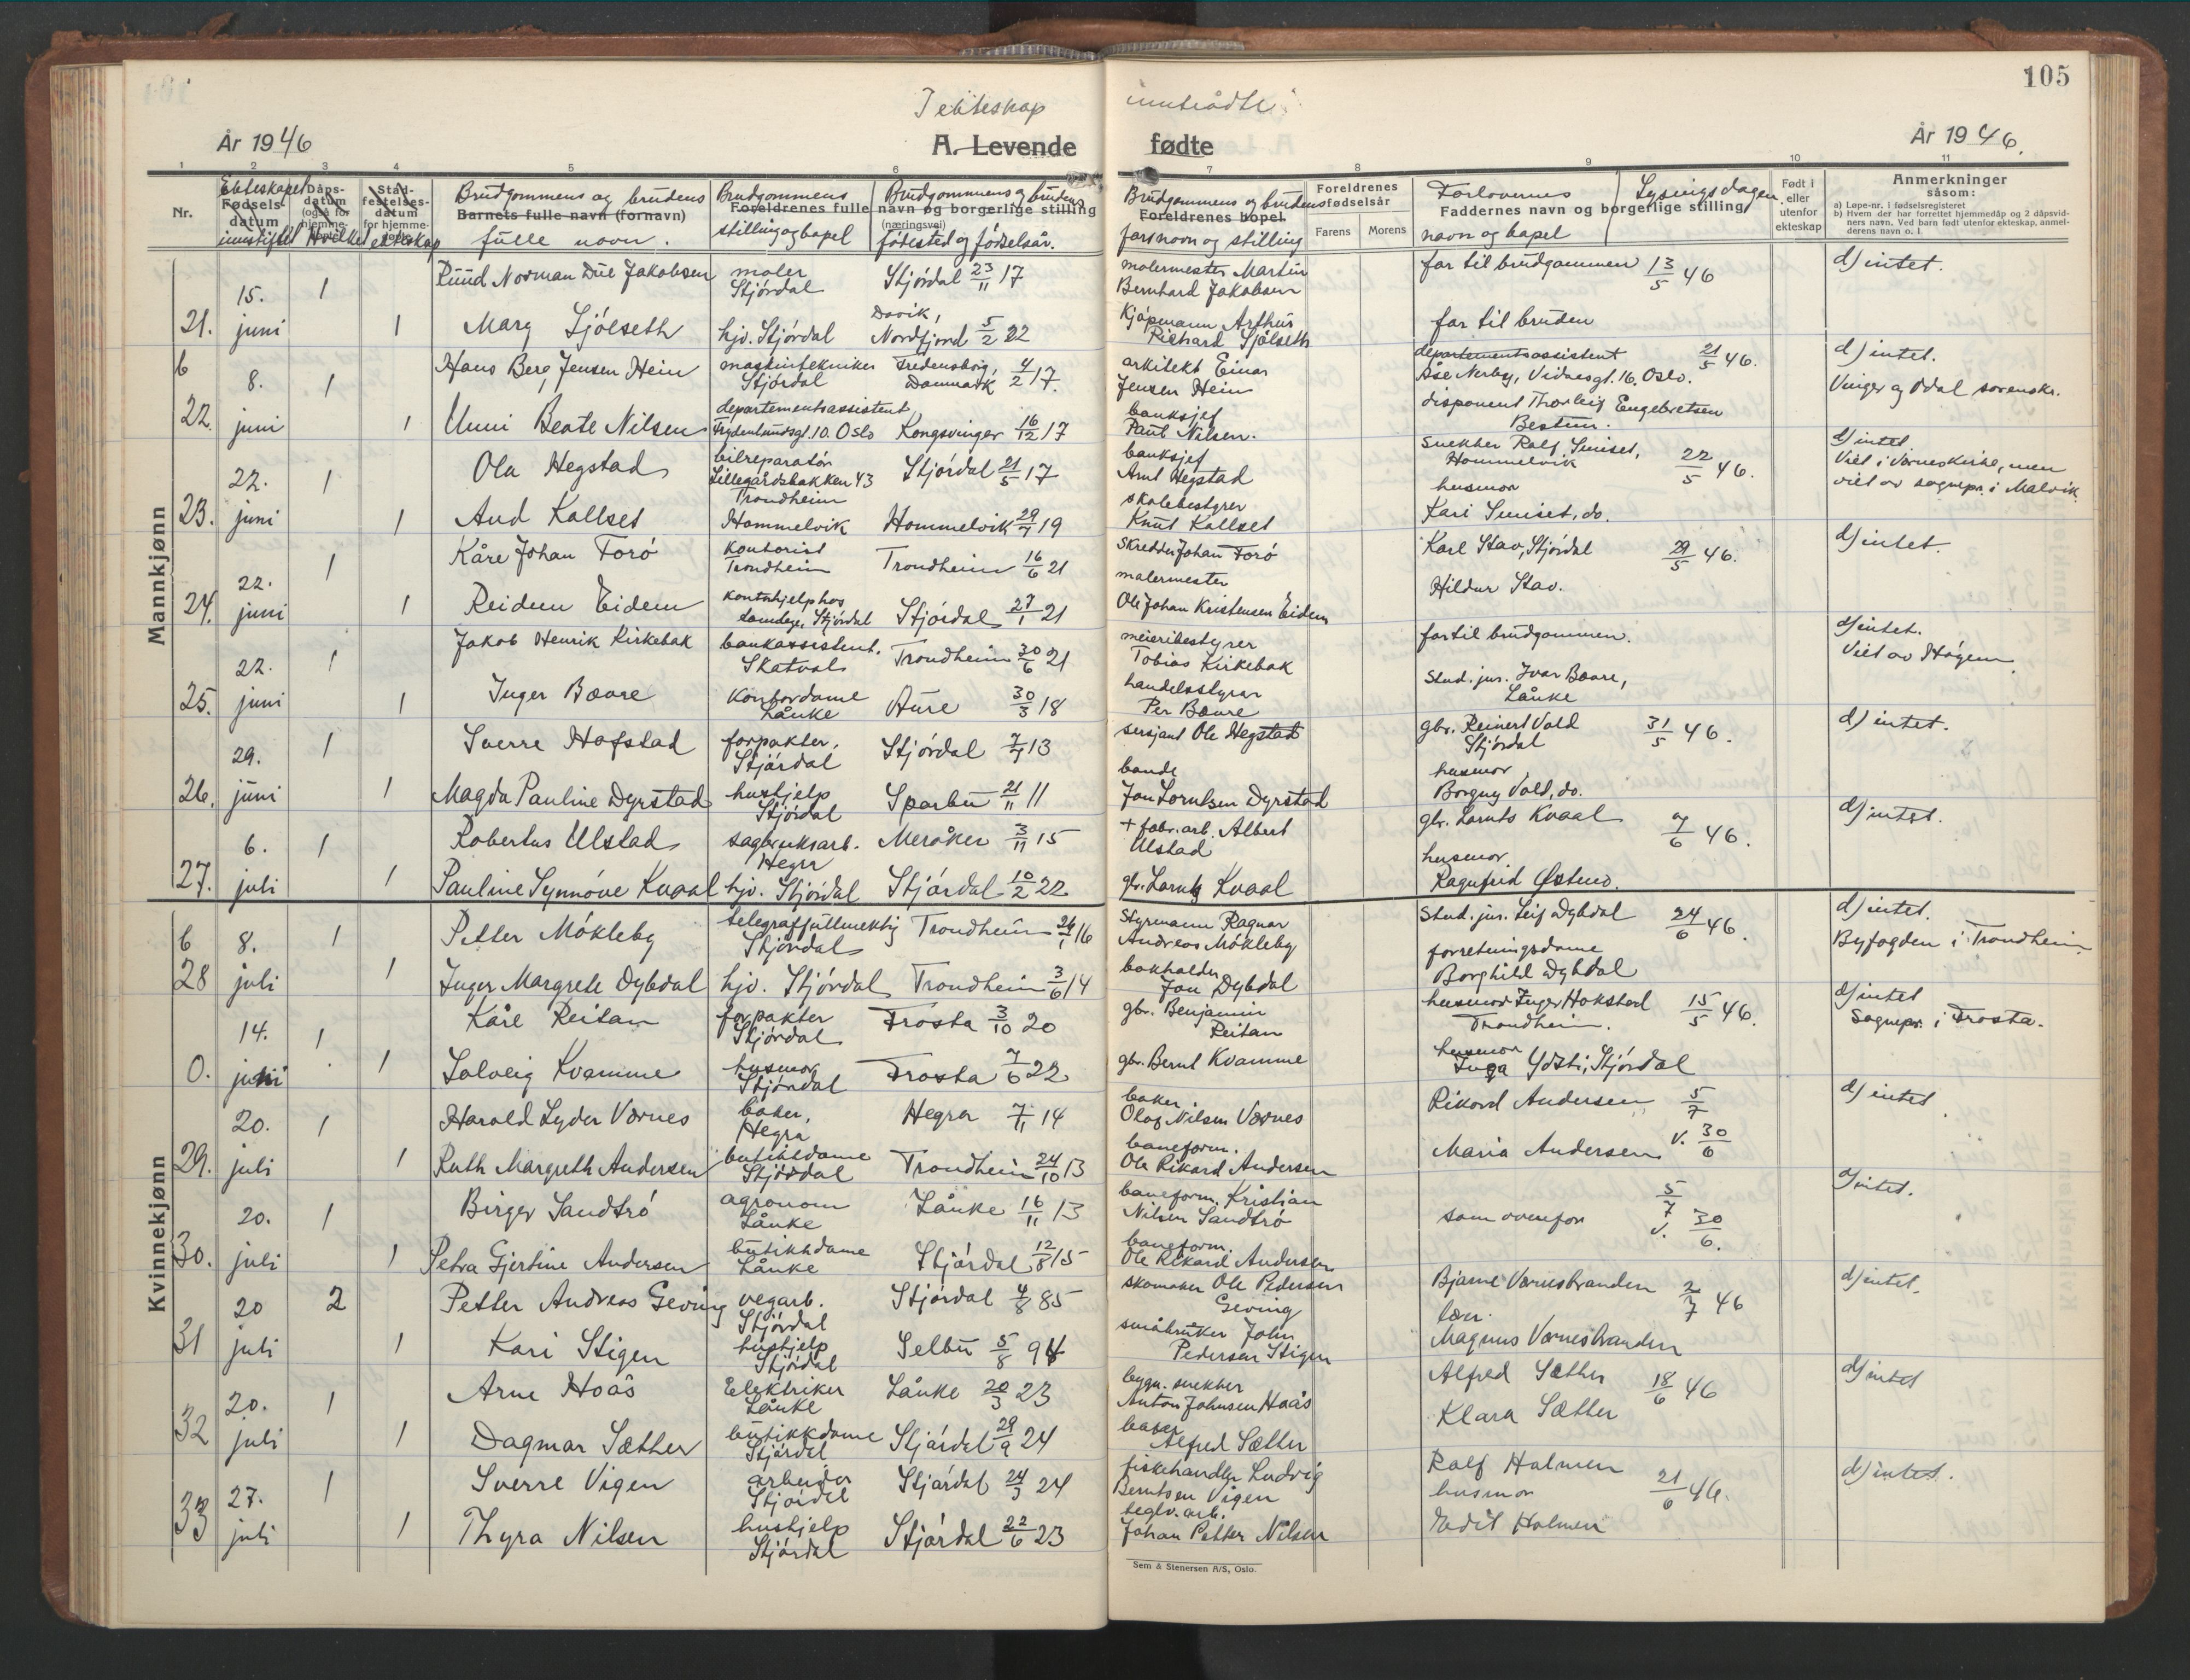 105
I ekteskap inntrådte
År 1946
A. Levende fødte
År 1946.
1 2 3 4 5 6 7 8 9 10 11
Nr.
Ekteskapet
Fødsels-
datum
innstiftet
Dåps-
datum
(også for
hjemme-
Hvilket
Stad-
festelses-
datum
for hjemme-
ekteskap
Brudgommens og brudens
Barnets fulle navn (fornavn)
fulle navn.
Brudgommens
stilling og bopel
Brudgommens og brudens
Foreldrenes fulle navn og borgerlige stilling
(næringsvei)
fødested og fødselsår.
Brudgommens og brudens
Foreldrenes bopel
fars navn og stilling
Foreldrenes
fødselsår
Farens Morens
Forlovernes
Lysingsdagen
Faddernes navn og borgerlige stilling
navn og bopel
Født i
eller
utenfor
ekteskap
Anmerkninger
såsom:
a) Løpe-nr. i fødselsregisteret
b) Hvem der har forrettet hjemmedåp og 2 dåpsvid-
ners navn. Ved barn født utenfor ekteskap, anmel-
derens navn o. l.
Mannkjønn
21. 15. juni 1
Ruud Norman Due Jakobsen maler Stjørdal Stjørdal 23/11 17 malermester Martin Bernhard Jakobsen far til brudgommen 13/5 46 d) intet.
1 Marg Sjölseth hjv. Stjørdal Davik, Nordfjord 5/2 22 Kjøpmann Arthur Richard Sjölseth far til bruden
b 22. 8. juni 1
Hans Berg Jensen Hein maskintekniker Stjørdal Fredensborg, Danmark 4/2 17. arkitekt Einar Jensen Hein departementsassistent Åse Nerby, Vidarsgt. 16. Oslo. 21/5 46. d) intet.
Vinger og Odal sorenskr.
1 Unni Beate Nilsen departementsassistent Frydenlundsgt. 10. Oslo Kongsvinger 16/12 17 banksjef Paul Nilsen. disponent Thorleif Engebretsen Bestum.
23. 22. juni 1
Ola Hegstad bilreparatør Lillegårdsbakken 43 Trondheim Stjørdal 21/5 17 banksjef Arnt Hegstad snekker Ralf Seniset, Hommelvik 22/5 46. d) intet.
Viet i Værnes kirke, men viet av sognepr. i Malvik.
1 Aud Kallset Hommelvik Hommelvik 29/7 19 skolebestyrer Knut Kallset husmor Kari Seniset, do.
24. 22. juni 1
Kåre Johan Forö kontorist Trondheim Trondheim 16/6 21 Skredder Johan Forö Karl Stav, Stjørdal 29/5 46. d) intet.
1 Reidun Eidem Stjørdal Stjørdal 27/1 21 malermester Ole Johan Kristensen Eidem Hildur Stav.
25. 22. juni 1
Jakob Henrik Kirkebak bankassistent. Skatval Trondheim 30/6 21 meieribestyrer Tobias Kirkebak far til brudgommen. d) intet.
Viet av Högem.
1 Inger Bævre Kontordame Lånke Aure 30/3 18 handelsstyrer Per Bævre Stud. jur. Ivar Bævre, Lånke
26. 29. juni 1
Sverre Hofstad forpakter, Stjørdal Stjørdal 7/7 13 sersjant Ole Hegstad gbr. Reinert Vold Stjørdal 31/5 46. d) intet.
1 Magda Pauline Dyrstad hushjelp Stjørdal Sparbu 21/11 11 bonde Jon Lorntsen Dyrstad husmor Borgny Vold, do.
27. 6. juli 1
Robertus Ulstad sagbruksarb. Hegra Meråker 3/11 15 + fabr. arb. Albert Ulstad gbr. Lornts Kvaal 7/6 46. d) intet.
1 Pauline Synnöve Kvaal hjv. Stjørdal Stjørdal 10/2 22 gbr. Lornts Kvaal husmor Ragnfrid Østmo.
Kvinnekjønn
b 28 8. juli 1
Petter Mökleby telegraffullmektig Stjørdal Trondheim 26/1 16 Styrmann Ragnar Andreas Mökleby Stud. jur. Leif Dybdal 24/6 46. d) intet.
Byfogden i Trondheim.
1 Inger Margrete Dybdal hjv. Stjørdal Trondheim 3/6 14 bokholder Jon Dybdal forretningsdame Borghild Dybdal
0. 14. juni 1
Kåre Reitan forpakter Stjørdal Frosta 3/10 20 gbr. Benjamin Reitan husmor Inger Hokstad Trondheim. 15/5 46. d) intet
Sognepr. i Frosta.
1 Solveig Kvamme husmor Stjørdal Frosta 7/6 22 gbr. Bernt Kvamme husmor Inga Ydsti, Stjørdal
29. 20. juli 1
Harald Lyder Værnes baker, Hegra Hegra 7/11 14 baker Olaf Nilsen Værnes Rikard Andersen 5/7 d) intet.
1 Ruth Margreth Andersen butikkdame Stjørdal Trondheim 24/10 13 baneform. Ole Rikard Andersen Maria Andersen v. 30/6
30. 20. juli 1
Birger Sandtrö agronom Lånke Lånke 16/11 13 baneform. Kristian Nilsen Sandtrö som ovenfor 5/7 v. 30/6. d) intet.
1 Petra Gjertine Andersen butikkdame Lånke Stjørdal 12/8 15 baneform. Ole Rikard Andersen
31 20 juli 2
Petter Andreas Geving vegarb. Stjørdal Stjørdal 4/8 85 skomaker Ole Pedersen Geving Bjarne Værnesbranden 2/7 46 d) intet.
1 Kari Stigen hushjelp Stjørdal Selbu 5/8 94 småbruker John Pedersen Stigen Magnus Værnesbranden
32 20. juli 1
Arne Hoås Elektriker Lånke Lånke 20/3 23 bygn. snekker Anton Johnsen Hoås Alfred Sæther 18/6 46 d) intet
1 Dagmar Sæther butikkdame Stjørdal Stjørdal 29/9 24 baker Alfred Sæther Klara Sæther
33 27. juli 1
Sverre Vigen arbeider Stjørdal Stjørdal 24/3 24 fiskehandler Ludvig Berntsen Vigen Ralf Halmen 21/6 46. d) intet.
1 Thyra Nilsen hushjelp Stjørdal Stjørdal 22/6 23 teglv. arb. Johan Petter Nilsen husmor Edit Holmen
Sem & Stenersen A/S, Oslo.